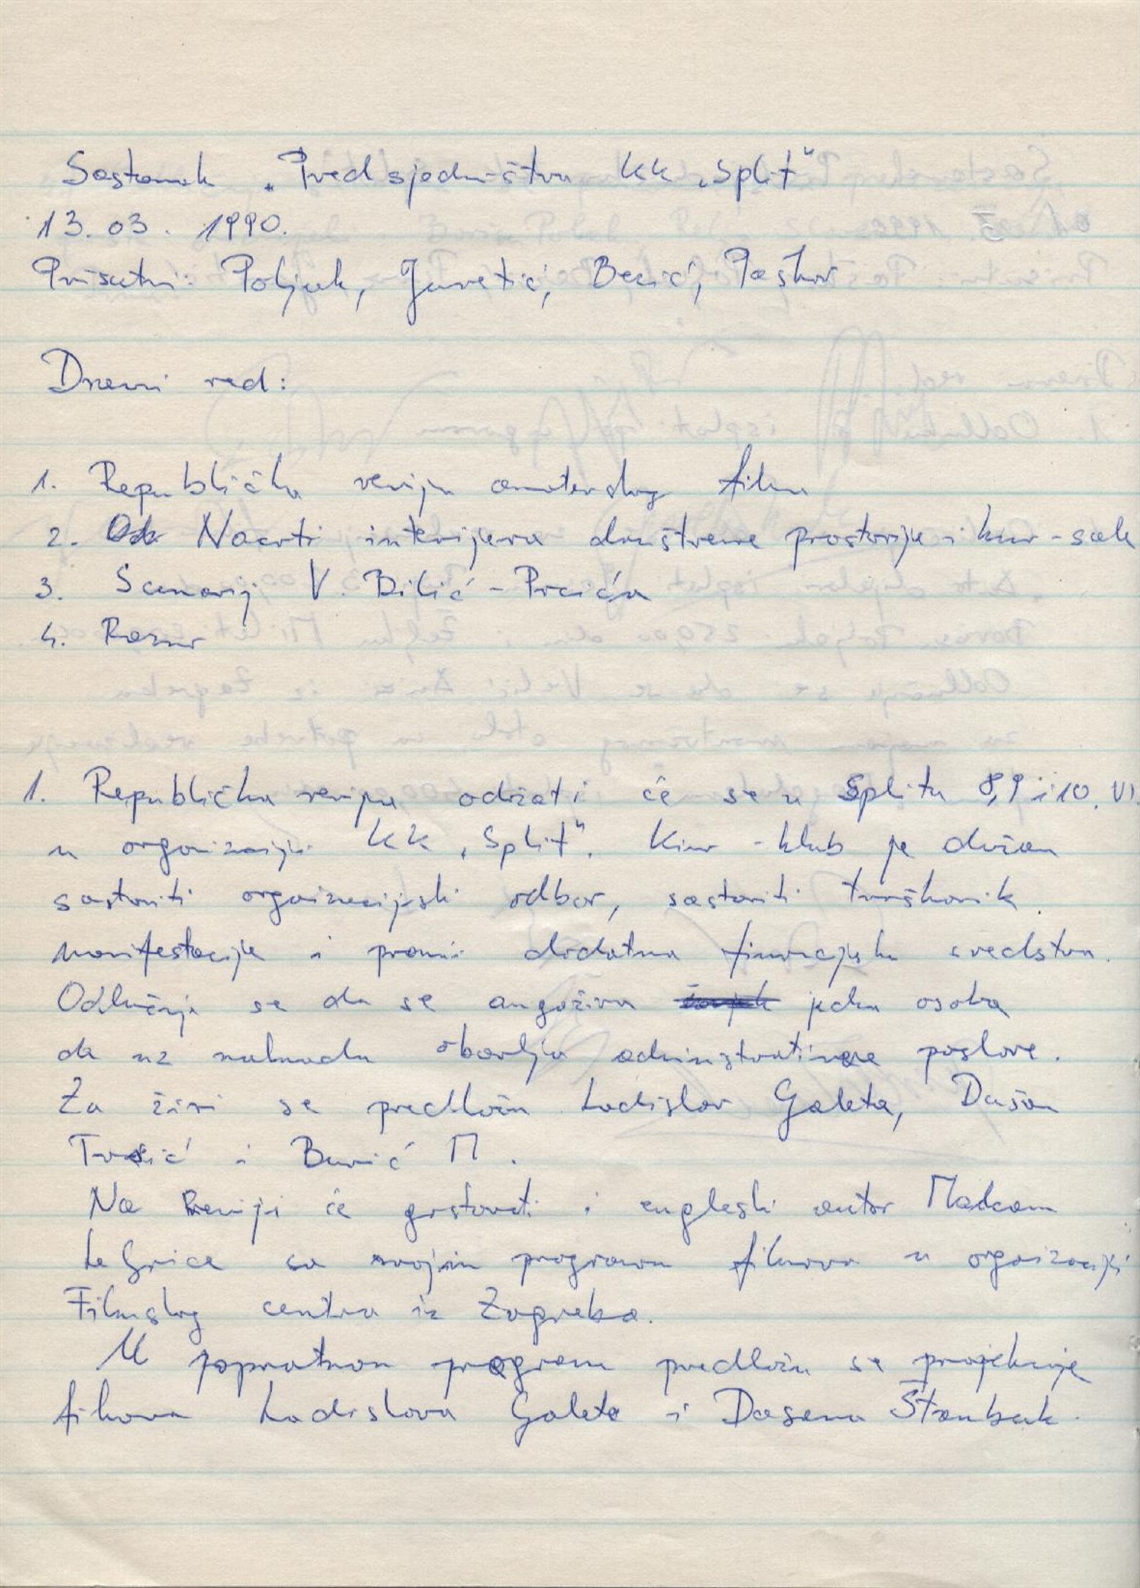 Sastanak „Predsjedništva KK „Split"
13. 03. 1990.
Prisutni: Poljak, Juretić, Becić, Paškov
Dnevni red:
1. Republička revija amaterskog filma
2. Nacrti interijera društvene prostorije i kino-sale
3. Scenarij V. Bilić-Prcića
4. Razno
1. Republička revija održati će se u Splitu 8,9 i 10. VI.
u organizaciji KK „Split". Kino-klub je dužan
sastaviti organizacijski odbor, sastaviti troškovnik
manifestacije i pronaći dodatna financijska sredstva.
Odlučuje se da se angažira jedna osoba
da uz naknadu obavlja administrativne poslove.
Za žiri se predlažu Ladislav Galeta, Dušan
Tvasić i Bunić M.
Na Reviji će gostovati i engleski autor Malcom
Le Grice sa svojim programom filmova u organizaciji
Filmskog centra iz Zagreba.
U popratnom programu predlažu se projekcije
filmova Ladislava Galete i Dasena Štambuk.